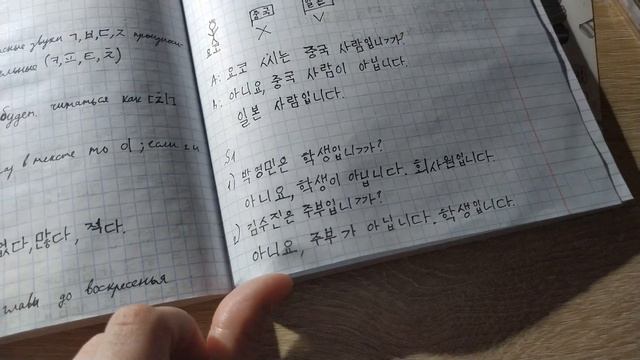 звуки ㄱ,ㅂ,ㄷ,ㅈ
(ㅋ,ㅍ,ㅌ,ㅊ)
будет читаться как [ㄹ]
в тексте то
많다, 적다.
главы до воскресенья
요코
중국
일본
X
V
A: 요코 씨는 중국 사람입니까?
아니요, 중국 사람이 아닙니다.
일본 사람입니다.
S1
1) 박영민은 학생입니까?
아니요, 학생이 아닙니다. 회사원입니다.
김수진은 주부입니까?
아니요, 주부가 아닙니다. 학생입니다.